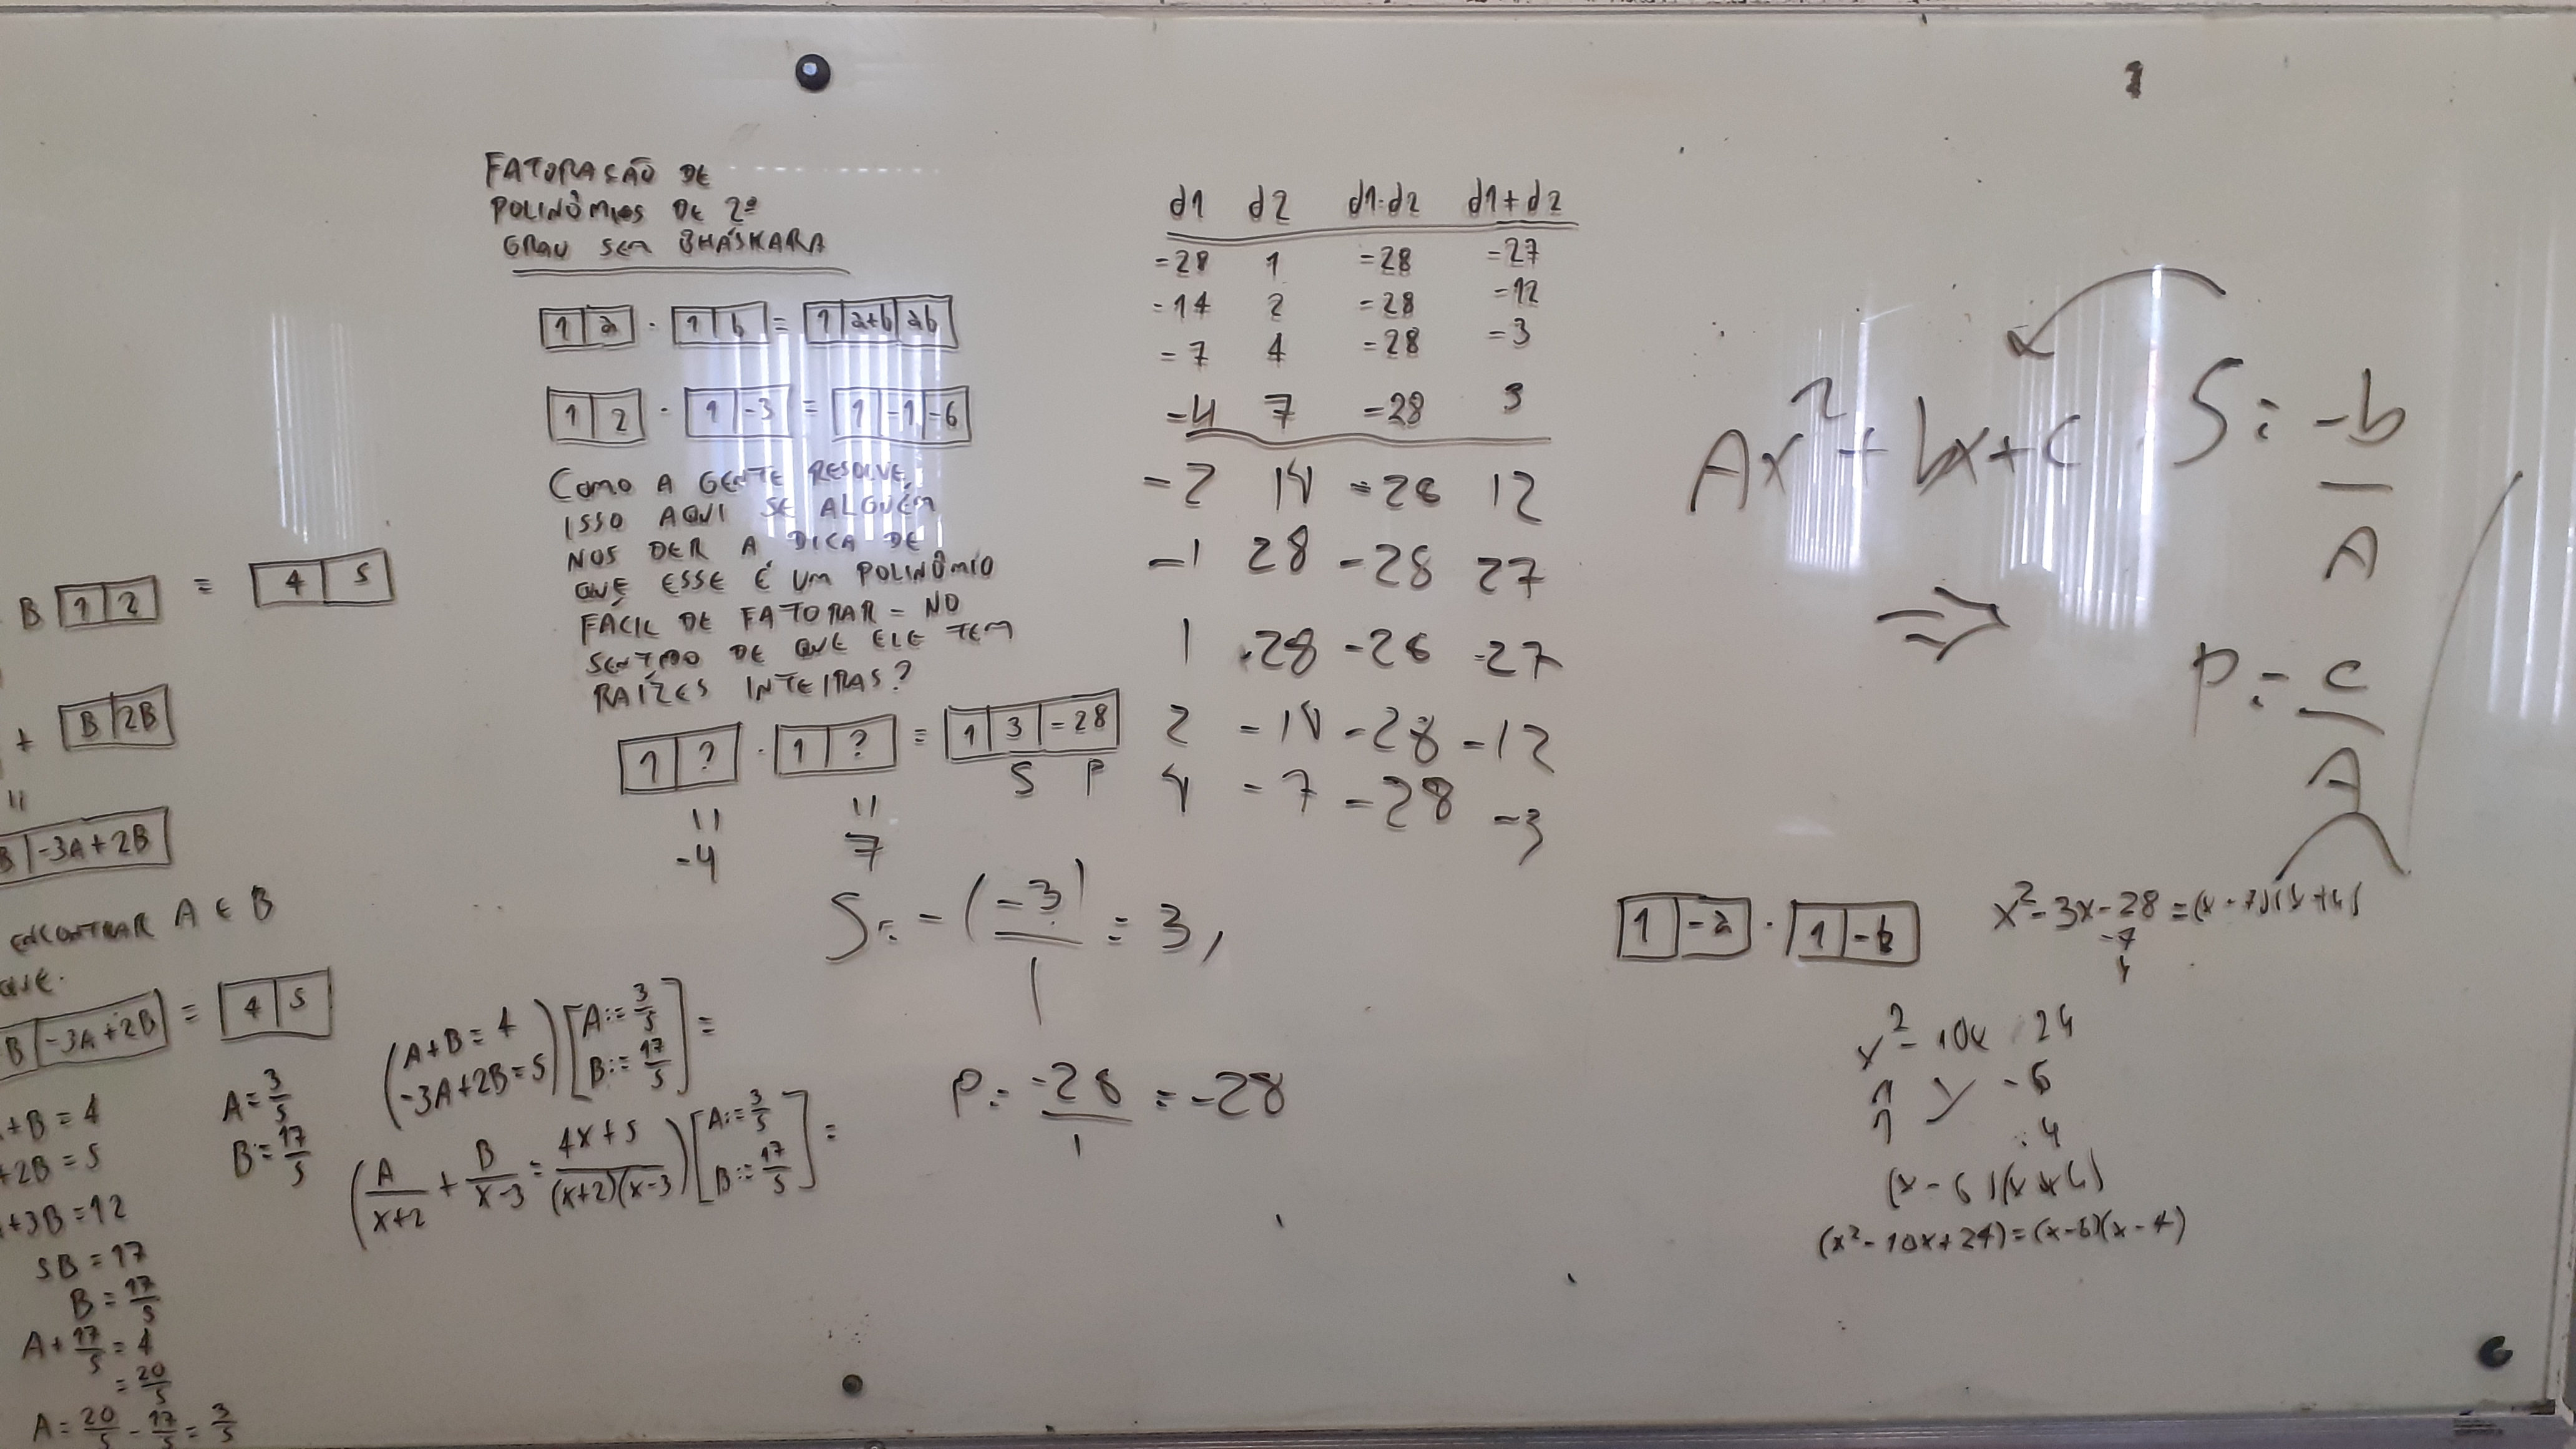 B [1|2] = [4|5]
+ [B|2B]
=
B|-3A+2B]
ENCONTRAR A E B
QUE.
B|-3A+2B] = [4|5]
+B=4
+2B=5
+3B=12
5B=17
B=17/5
A+17/5=4
=20/5
A=20/5-17/5=3/5
A=3/5
B=17/5
FATORAÇÃO DE
POLINÔMIOS DE 2º
GRAU SEM BHÁSKARA
[1|a]·[1|b]=[1|a+b|ab]
[1|2]·[1|-3]=[1|-1|-6]
COMO A GENTE RESOLVE
ISSO AQUI SE ALGUÉM
NOS DER A DICA DE
QUE ESSE É UM POLINÔMIO
FÁCIL DE FATORAR - NO
SENTIDO DE QUE ELE TEM
RAÍZES INTEIRAS?
[1|?]·[1|?]=[1|3|-28]
S P
= =
-4 7
(A+B=4
-3A+2B=5)[A:=3/5
B:=17/5]=
(A/(x+2)+B/(x-3)=(4x+5)/((x+2)(x-3)))[A:=3/5
B:=17/5]=
d1 d2 d1·d2 d1+d2
-28 1 -28 -27
-14 2 -28 -12
-7 4 -28 -3
-4 7 -28 3
-2 14 -28 12
-1 28 -28 27
1 -28 -28 -27
2 -14 -28 -12
4 -7 -28 -3
S=-(-3)/1=3,
P=-28/1=-28
Ax²+bx+c
S=-b/A
⇒
P=c/A
[1|-a]·[1|-b]
x²-3x-28=(x-7)(x+4)
-7
4
x²-10x 24
1 -6
1 -4
(x-6)(x-4)
(x²-10x+24)=(x-6)(x-4)